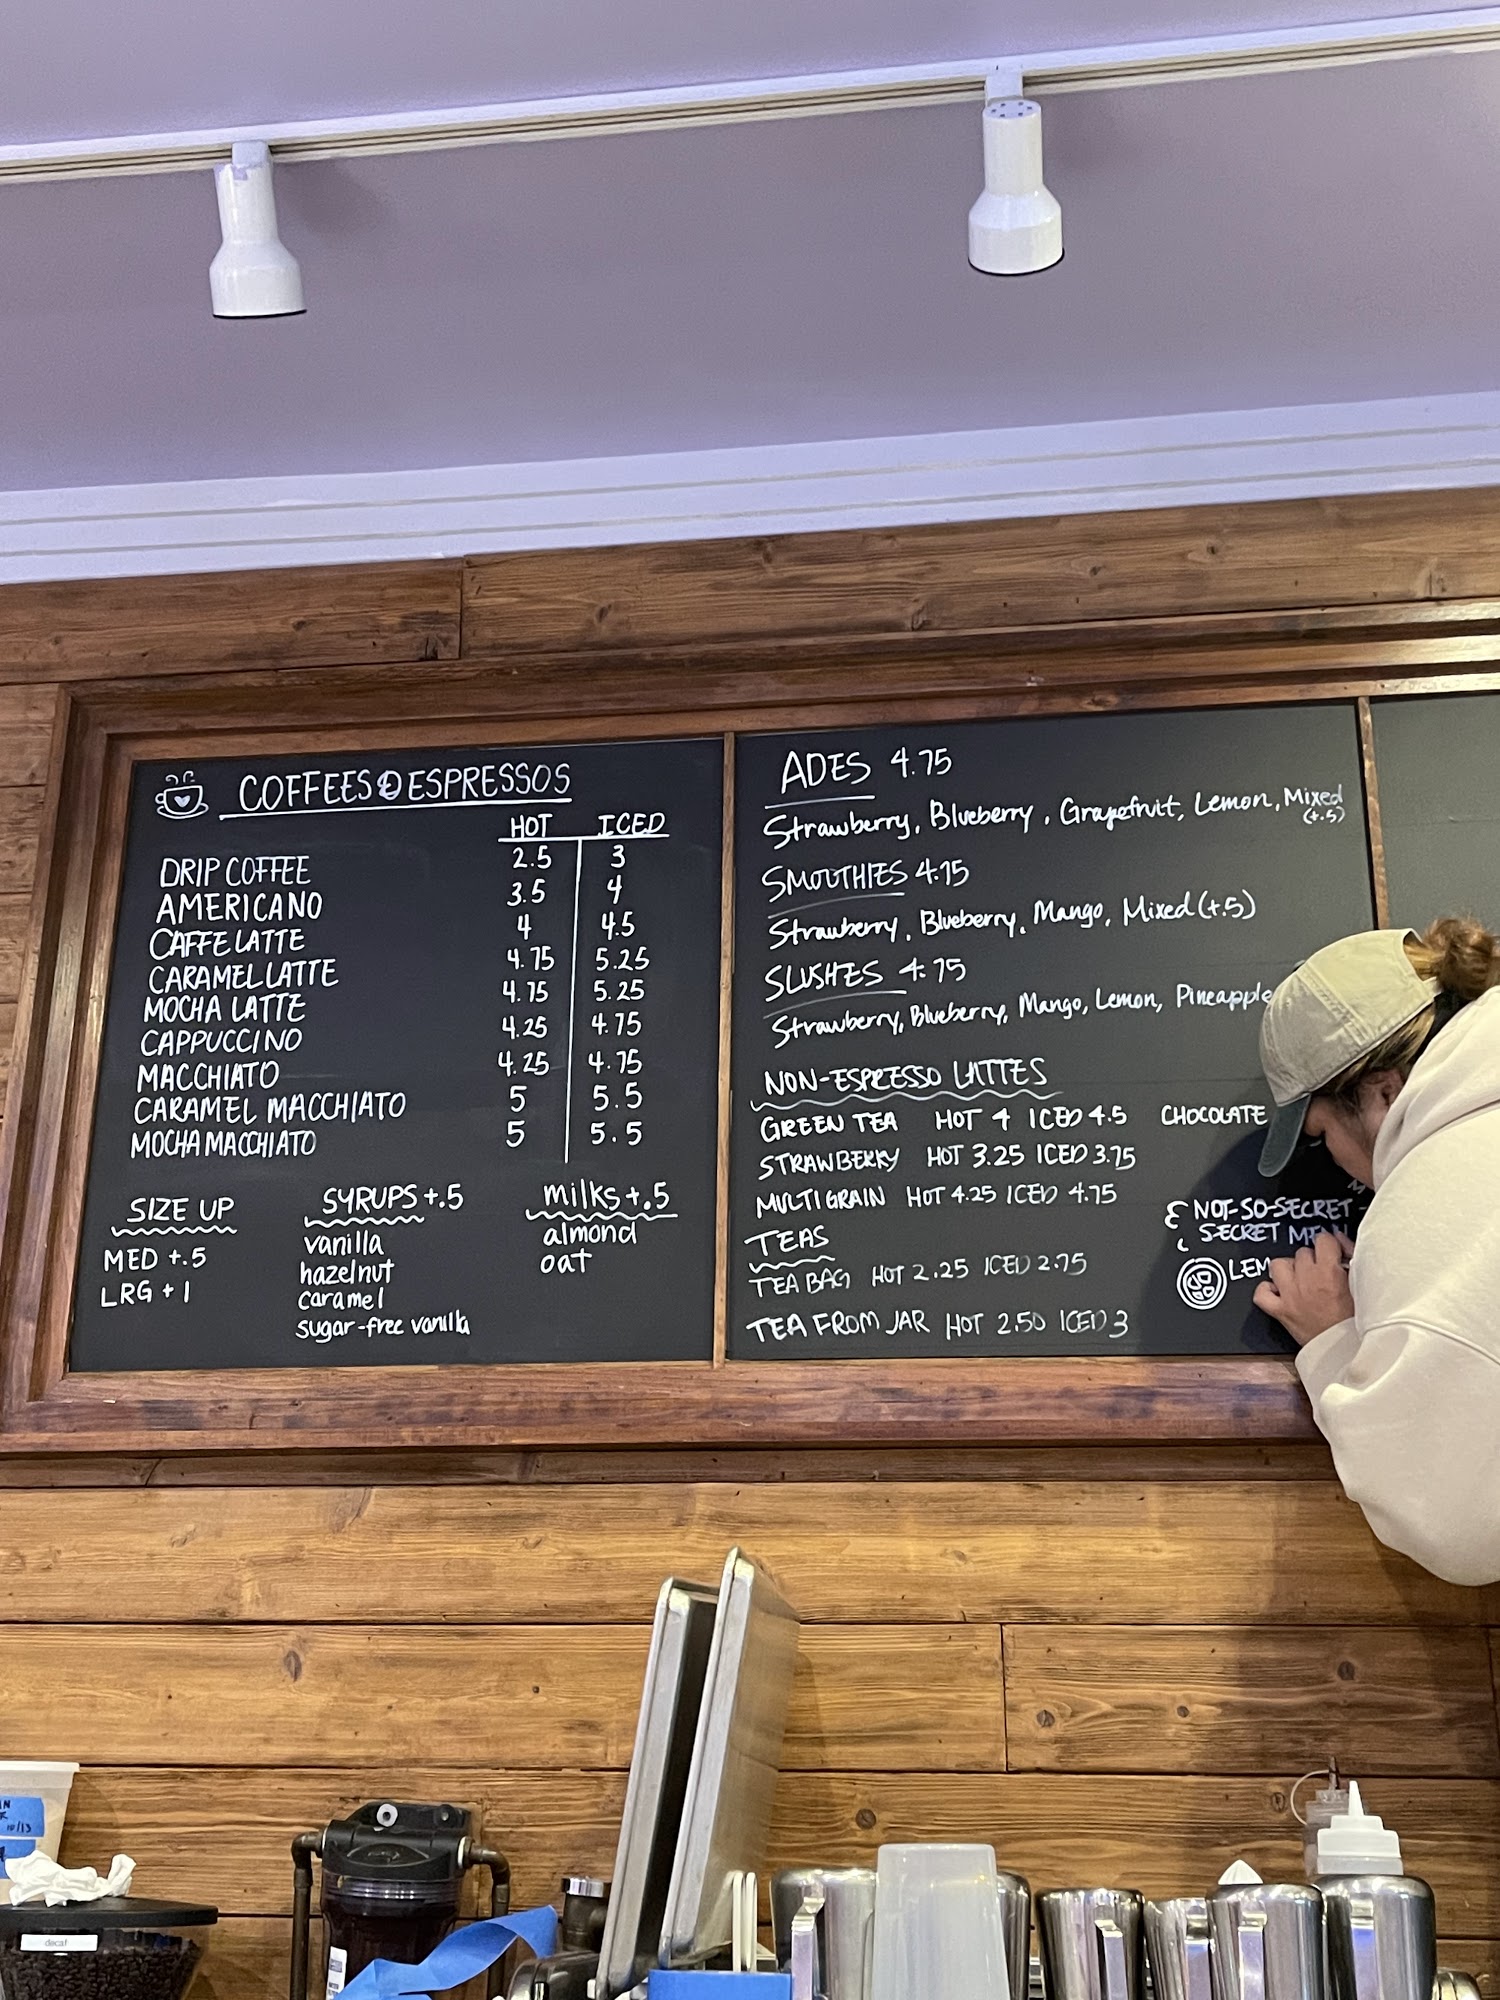 COFFEES & ESPRESSOS
HOT ICED
DRIP COFFEE 2.5 3
AMERICANO 3.5 4
CAFFE LATTE 4 4.5
CARAMEL LATTE 4.75 5.25
MOCHA LATTE 4.75 5.25
CAPPUCCINO 4.25 4.75
MACCHIATO 4.25 4.75
CARAMEL MACCHIATO 5 5.5
MOCHA MACCHIATO 5 5.5
SIZE UP
MED +.5
LRG +1
SYRUPS +.5
vanilla
hazelnut
caramel
sugar-free vanilla
milks +.5
almond
oat
ADES 4.75
Strawberry, Blueberry, Grapefruit, Lemon, Mixed
(+.5)
SMOOTHIES 4.75
Strawberry, Blueberry, Mango, Mixed (+.5)
SLUSHES 4.75
Strawberry, Blueberry, Mango, Lemon, Pineapple
NON-ESPRESSO LATTES
GREEN TEA HOT 4 ICED 4.5 CHOCOLATE
STRAWBERRY HOT 3.25 ICED 3.75
MULTIGRAIN HOT 4.25 ICED 4.75
TEAS
TEA BAG HOT 2.25 ICED 2.75
TEA FROM JAR HOT 2.50 ICED 3
NOT-SO-SECRET -
SECRET
LEM
10/13
decaf